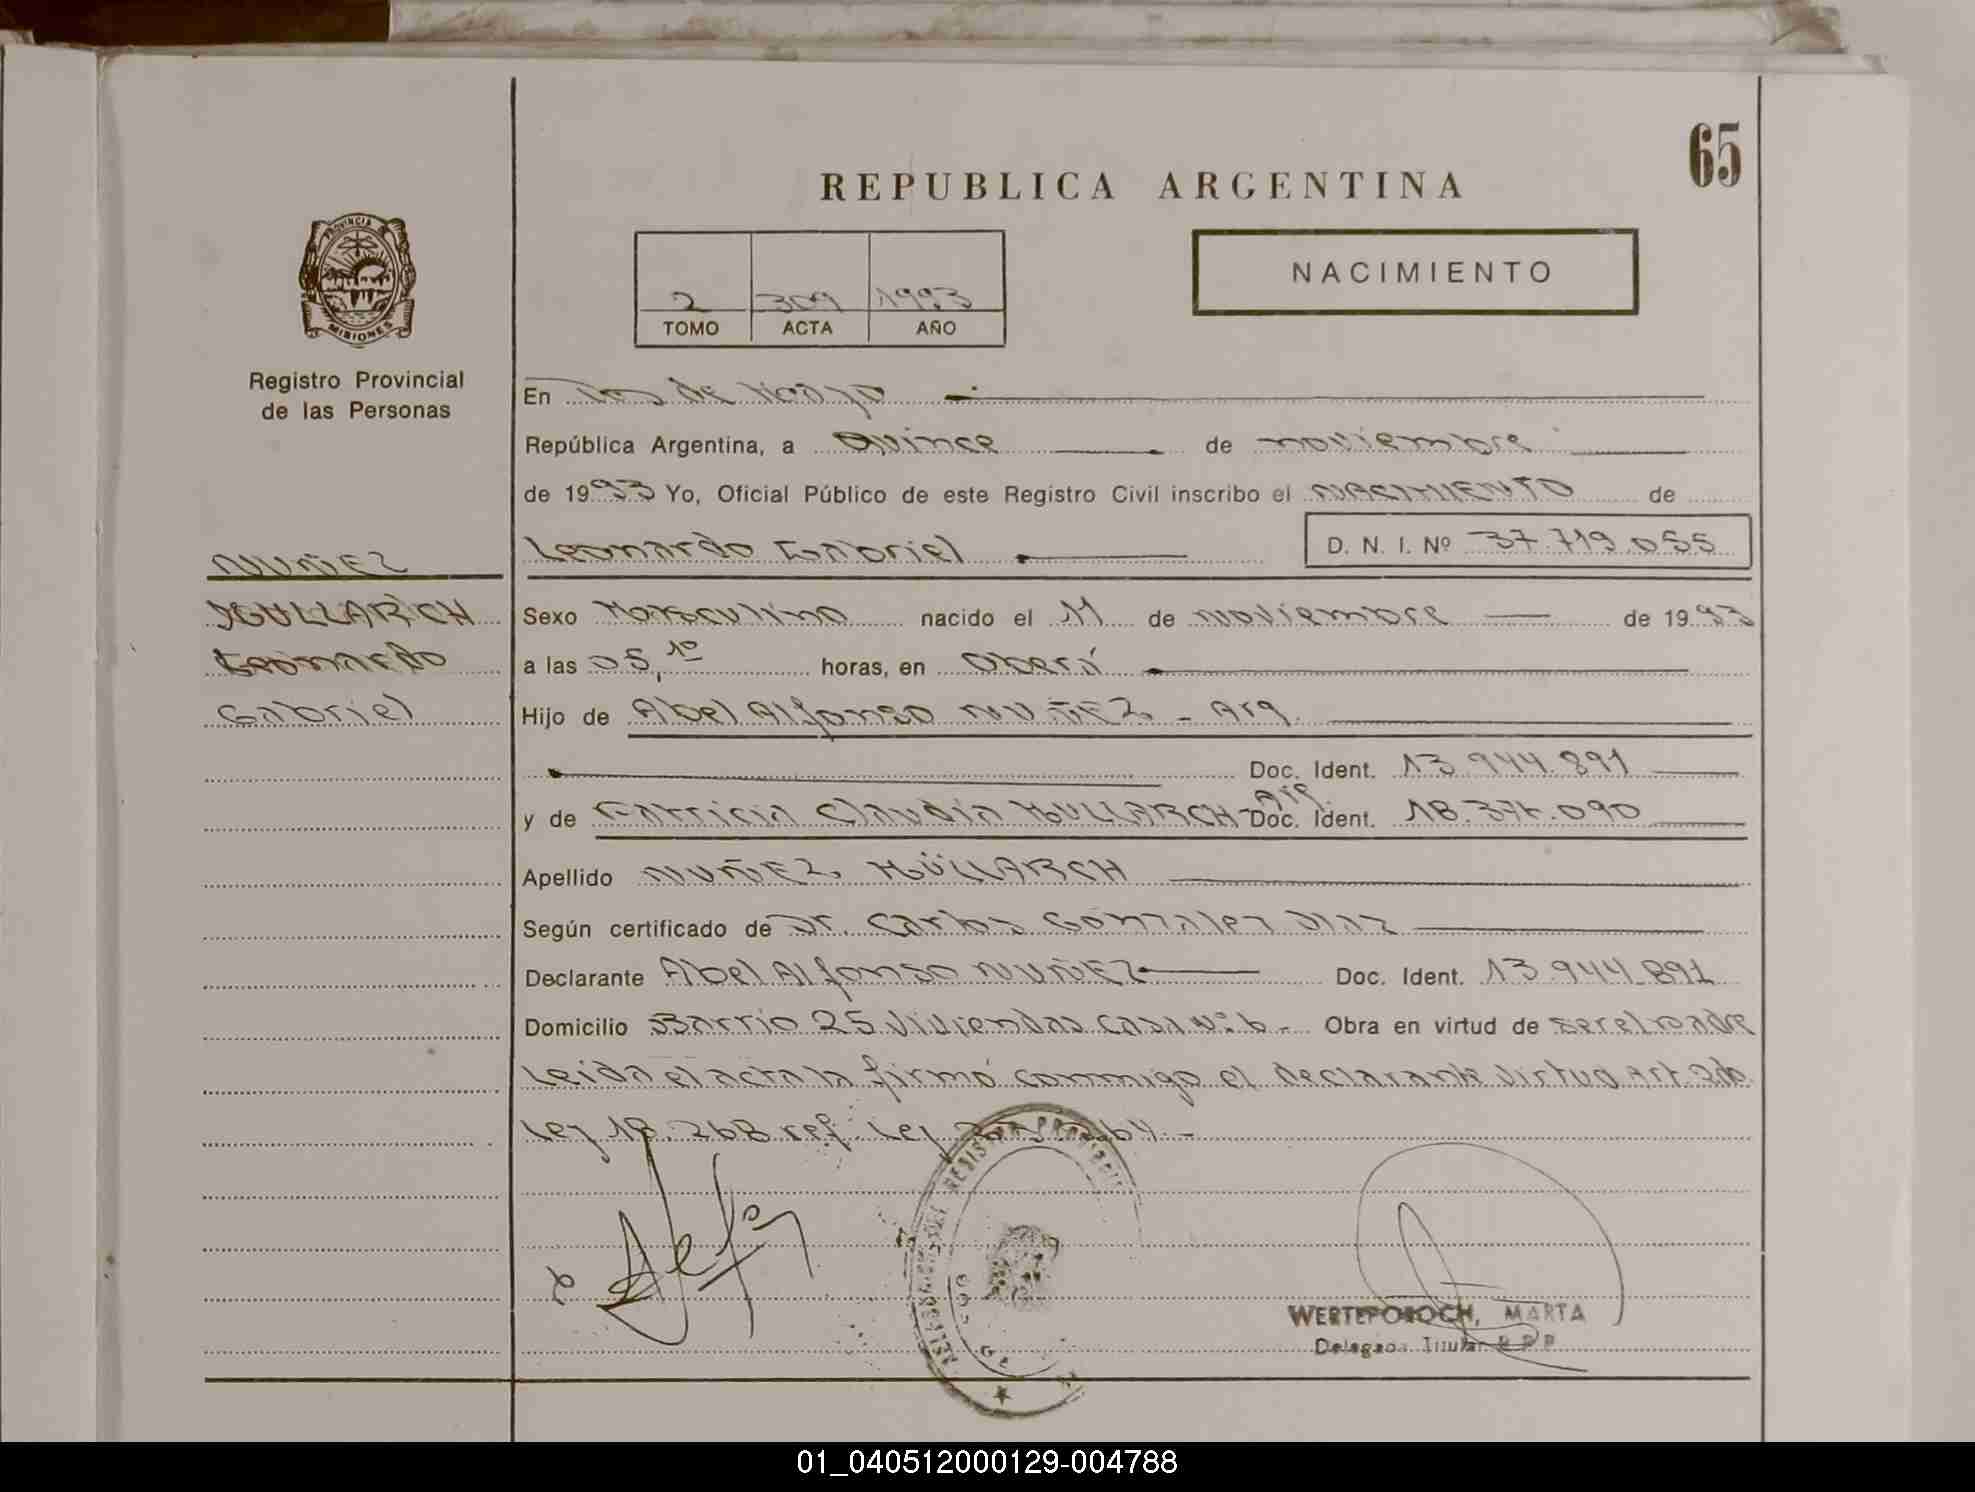 65
REPUBLICA ARGENTINA
PROVINCIA DE
MISIONES
Registro Provincial
de las Personas
2 309 1993
TOMO ACTA AÑO
NACIMIENTO
En Dos de Mayo
República Argentina, a Quince de noviembre
de 1993 Yo, Oficial Público de este Registro Civil inscribo el NACIMIENTO de
Leonardo Gabriel D. N. I. Nº 37.719.055
NUÑEZ
HÜLLARICH
Leonardo
Gabriel
Sexo Masculino nacido el 11 de noviembre de 1993
a las 05,10 horas, en Oberá
Hijo de Abel Alfonso NUÑEZ - Arg.
Doc. Ident. 13.944.891
y de Patricia Claudia HULLARCH - Arg. Doc. Ident. 18.374.090
Apellido NUÑEZ HÜLLARCH
Según certificado de Dr. Carlos Gonzalez Diaz
Declarante Abel Alfonso NUÑEZ Doc. Ident. 13.944.891
Domicilio Barrio 25 Viviendas casa Nº 6 - Obra en virtud de ser el padre
Leida el acta la firmó conmigo el declarante virtud Art. 2do
Ley 18.268 ref. Ley
WERTEPOROCH, MARTA
Delegada Titular R P P
01_040512000129-004788